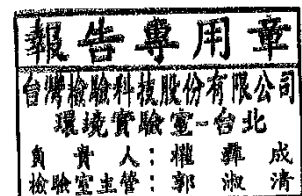 報告專用章
台灣檢驗科技股份有限公司
環境實驗室-台北
負責人:楊彝成
檢驗室主管:郭淑清